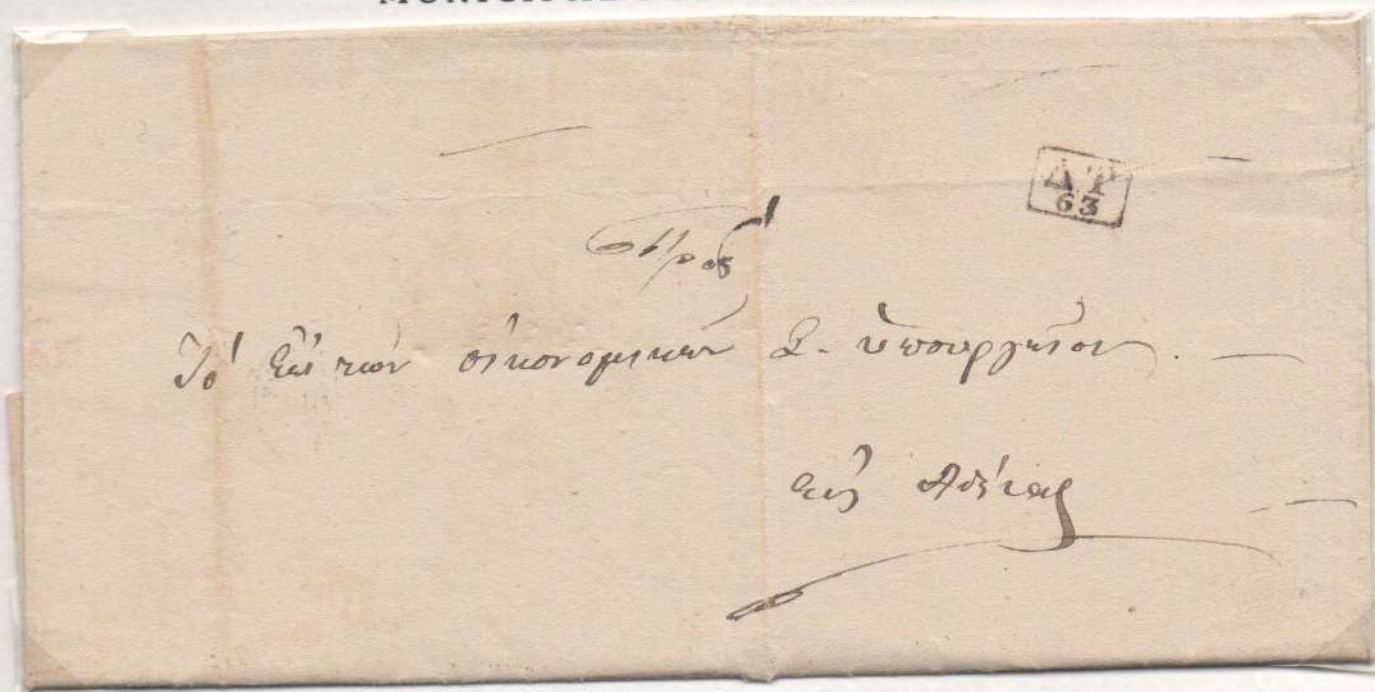 MUNICIPAL
Δ.Τ
63
Πρός
Τό ἐπί τῶν οἰκονομικῶν Σ. ὑπουργεῖον. —
εἰς Ἀθήνας